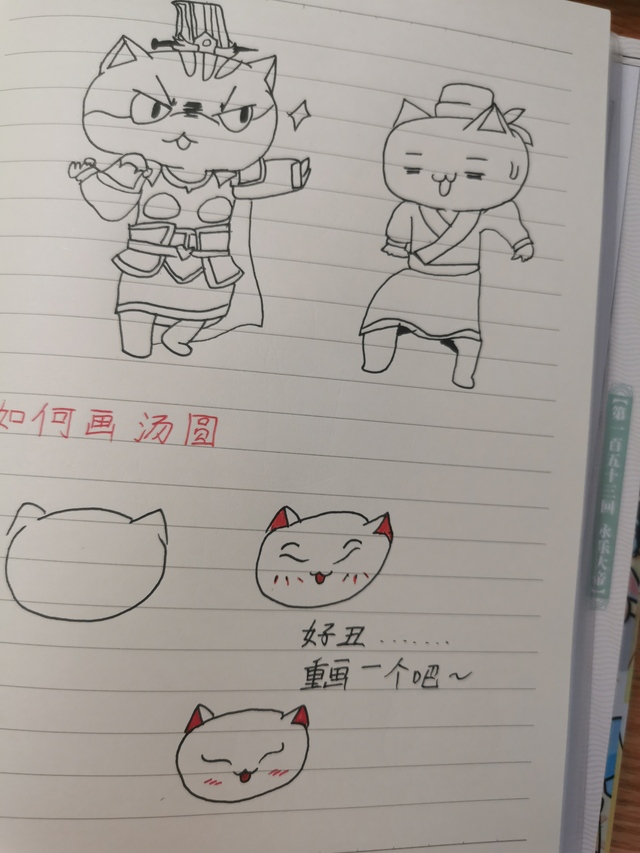 如何画汤圆
好丑.......
重画一个吧~
【第一百五十三回 永乐大帝】